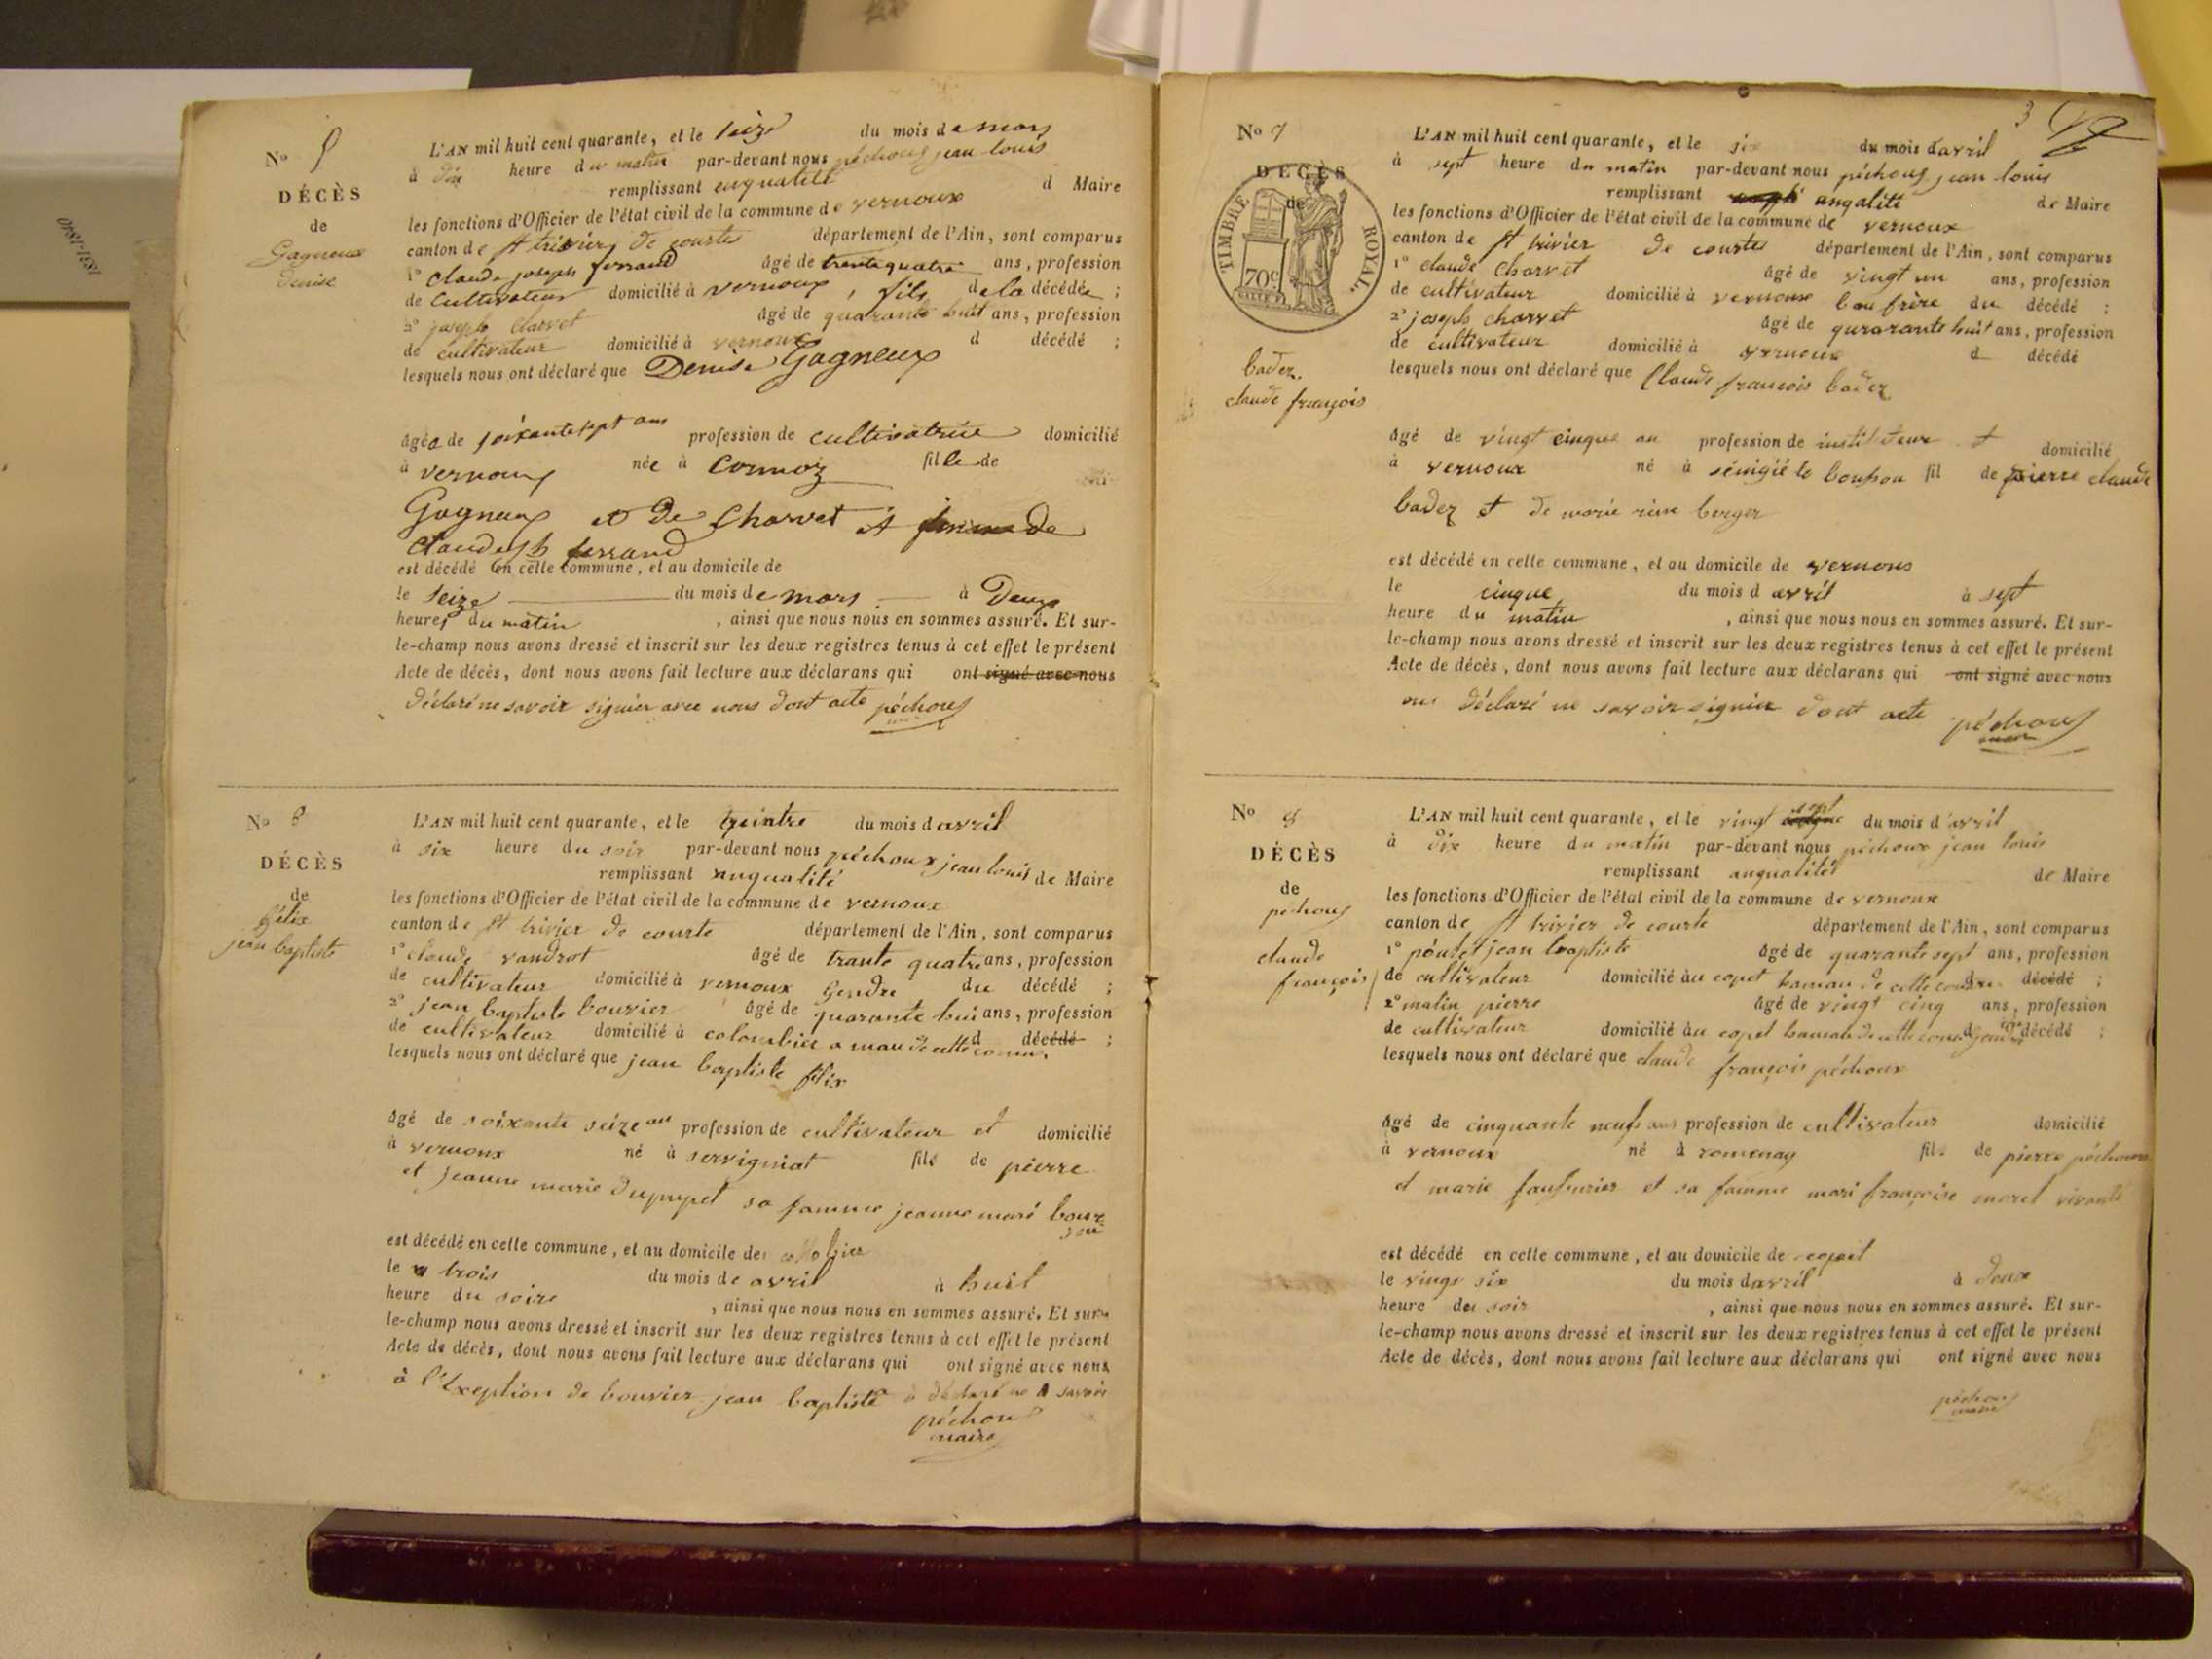 1831-1840
N° 5
DÉCÈS
de
Gagneux
Denise
L'AN mil huit cent quarante, et le seize du mois de mars
à dix heure du matin par-devant nous péchoux jean louis
remplissant enqualité d Maire
les fonctions d'Officier de l'état civil de la commune de vernoux
canton de St trivier de courtes département de l'Ain, sont comparus
1° Claude joseph ferrand âgé de trente quatre ans, profession
de Cultivateur domicilié à vernoux, fils de la décédée ;
2° joseph Charvet âgé de quarante huit ans, profession
de cultivateur domicilié à vernoux d décédé ;
lesquels nous ont déclaré que Denise Gagneux
âgée de soixante sept ans profession de cultivatrice domicilié
à vernoux née à Cormoz fille de
Gagneux et de Charvet et femme de
Claude jh ferrand
est décédé en cette commune, et au domicile de
le seize du mois de mars à Deux
heures du matin , ainsi que nous nous en sommes assuré. Et sur-
le-champ nous avons dressé et inscrit sur les deux registres tenus à cet effet le présent
Acte de décès, dont nous avons fait lecture aux déclarans qui ont signé avec nous
déclaré ne savoir signier avec nous dont acte péchoux
N° 6
DÉCÈS
de
félix
jean baptiste
L'AN mil huit cent quarante, et le du mois d avril
à six heure du soir par-devant nous péchoux jean louis
remplissant anqualité de Maire
les fonctions d'Officier de l'état civil de la commune de vernoux
canton de St trivier de courte département de l'Ain, sont comparus
1° claude vandrot âgé de trante quatre ans, profession
de cultivateur domicilié à vernoux gendre du décédé ;
2° jean baptiste bouvier âgé de quarante hui ans, profession
de cultivateur domicilié à colombier amau de cette comu. d décédé ;
lesquels nous ont déclaré que jean baptiste félix
âgé de soixante seize an profession de cultivateur et domicilié
à vernoux né à servigniat fils de pierre
et jeanne marie dupupet sa famme jeanne mari
est décédé en cette commune, et au domicile de
le trois du mois de avril à huit
heure du soire , ainsi que nous nous en sommes assuré. Et sur-
le-champ nous avons dressé et inscrit sur les deux registres tenus à cet effet le présent
Acte de décès, dont nous avons fait lecture aux déclarans qui ont signé avec nous
à l'exeption de bouvier jean baptiste a déclaré ne savoir
péchoux
maire
3
N° 7
DÉCÈS
de
TIMBRE ROYAL.
70c
badez
claude françois
L'AN mil huit cent quarante, et le six du mois d'avril
à sept heure du matin par-devant nous péchoux jean louis
remplissant anqalité de Maire
les fonctions d'Officier de l'état civil de la commune de vernoux
canton de St trivier de courtes département de l'Ain, sont comparus
1° claude Charvet âgé de vingt un ans, profession
de cultivateur domicilié à vernoux bau frère du décédé ;
2° joseph charvet âgé de qurarante huit ans, profession
de cultivateur domicilié à vernoux d décédé
lesquels nous ont déclaré que Claude françois badez
âgé de vingt cinque an profession de instituteur et domicilié
à vernoux né à fil de pierre claude
badez et de marie berger
est décédé en cette commune, et au domicile de vernous
le cinque du mois d avril à sept
heure du matin , ainsi que nous nous en sommes assuré. Et sur-
le-champ nous avons dressé et inscrit sur les deux registres tenus à cet effet le présent
Acte de décès, dont nous avons fait lecture aux déclarans qui ont signé avec nous
déclaré ne savoir signier dont acte péchoux
N° 8
DÉCÈS
de
péchoux
claude
françois
L'AN mil huit cent quarante, et le vingt sept du mois d'avril
à dix heure du matin par-devant nous péchoux jean louis
remplissant anqualité de Maire
les fonctions d'Officier de l'état civil de la commune de vernoux
canton de St trivier de courte département de l'Ain, sont comparus
1° poutet jean baptiste âgé de quarante sept ans, profession
de cultivateur domicilié àu copet hamau de cette décédé ;
2° matin pierre âgé de vingt cinq ans, profession
de cultivateur domicilié àu copet hamau de cette décédé ;
lesquels nous ont déclaré que claude françois péchoux
âgé de cinquante neufs ans profession de cultivateur domicilié
à vernoux né à romenay fils de pierre péchoux
et marie et sa famme mari françoise morel vivante
est décédé en cette commune, et au domicile de
le vingt six du mois d avril à deux
heure du soir , ainsi que nous nous en sommes assuré. Et sur-
le-champ nous avons dressé et inscrit sur les deux registres tenus à cet effet le présent
Acte de décès, dont nous avons fait lecture aux déclarans qui ont signé avec nous
péchoux
maire